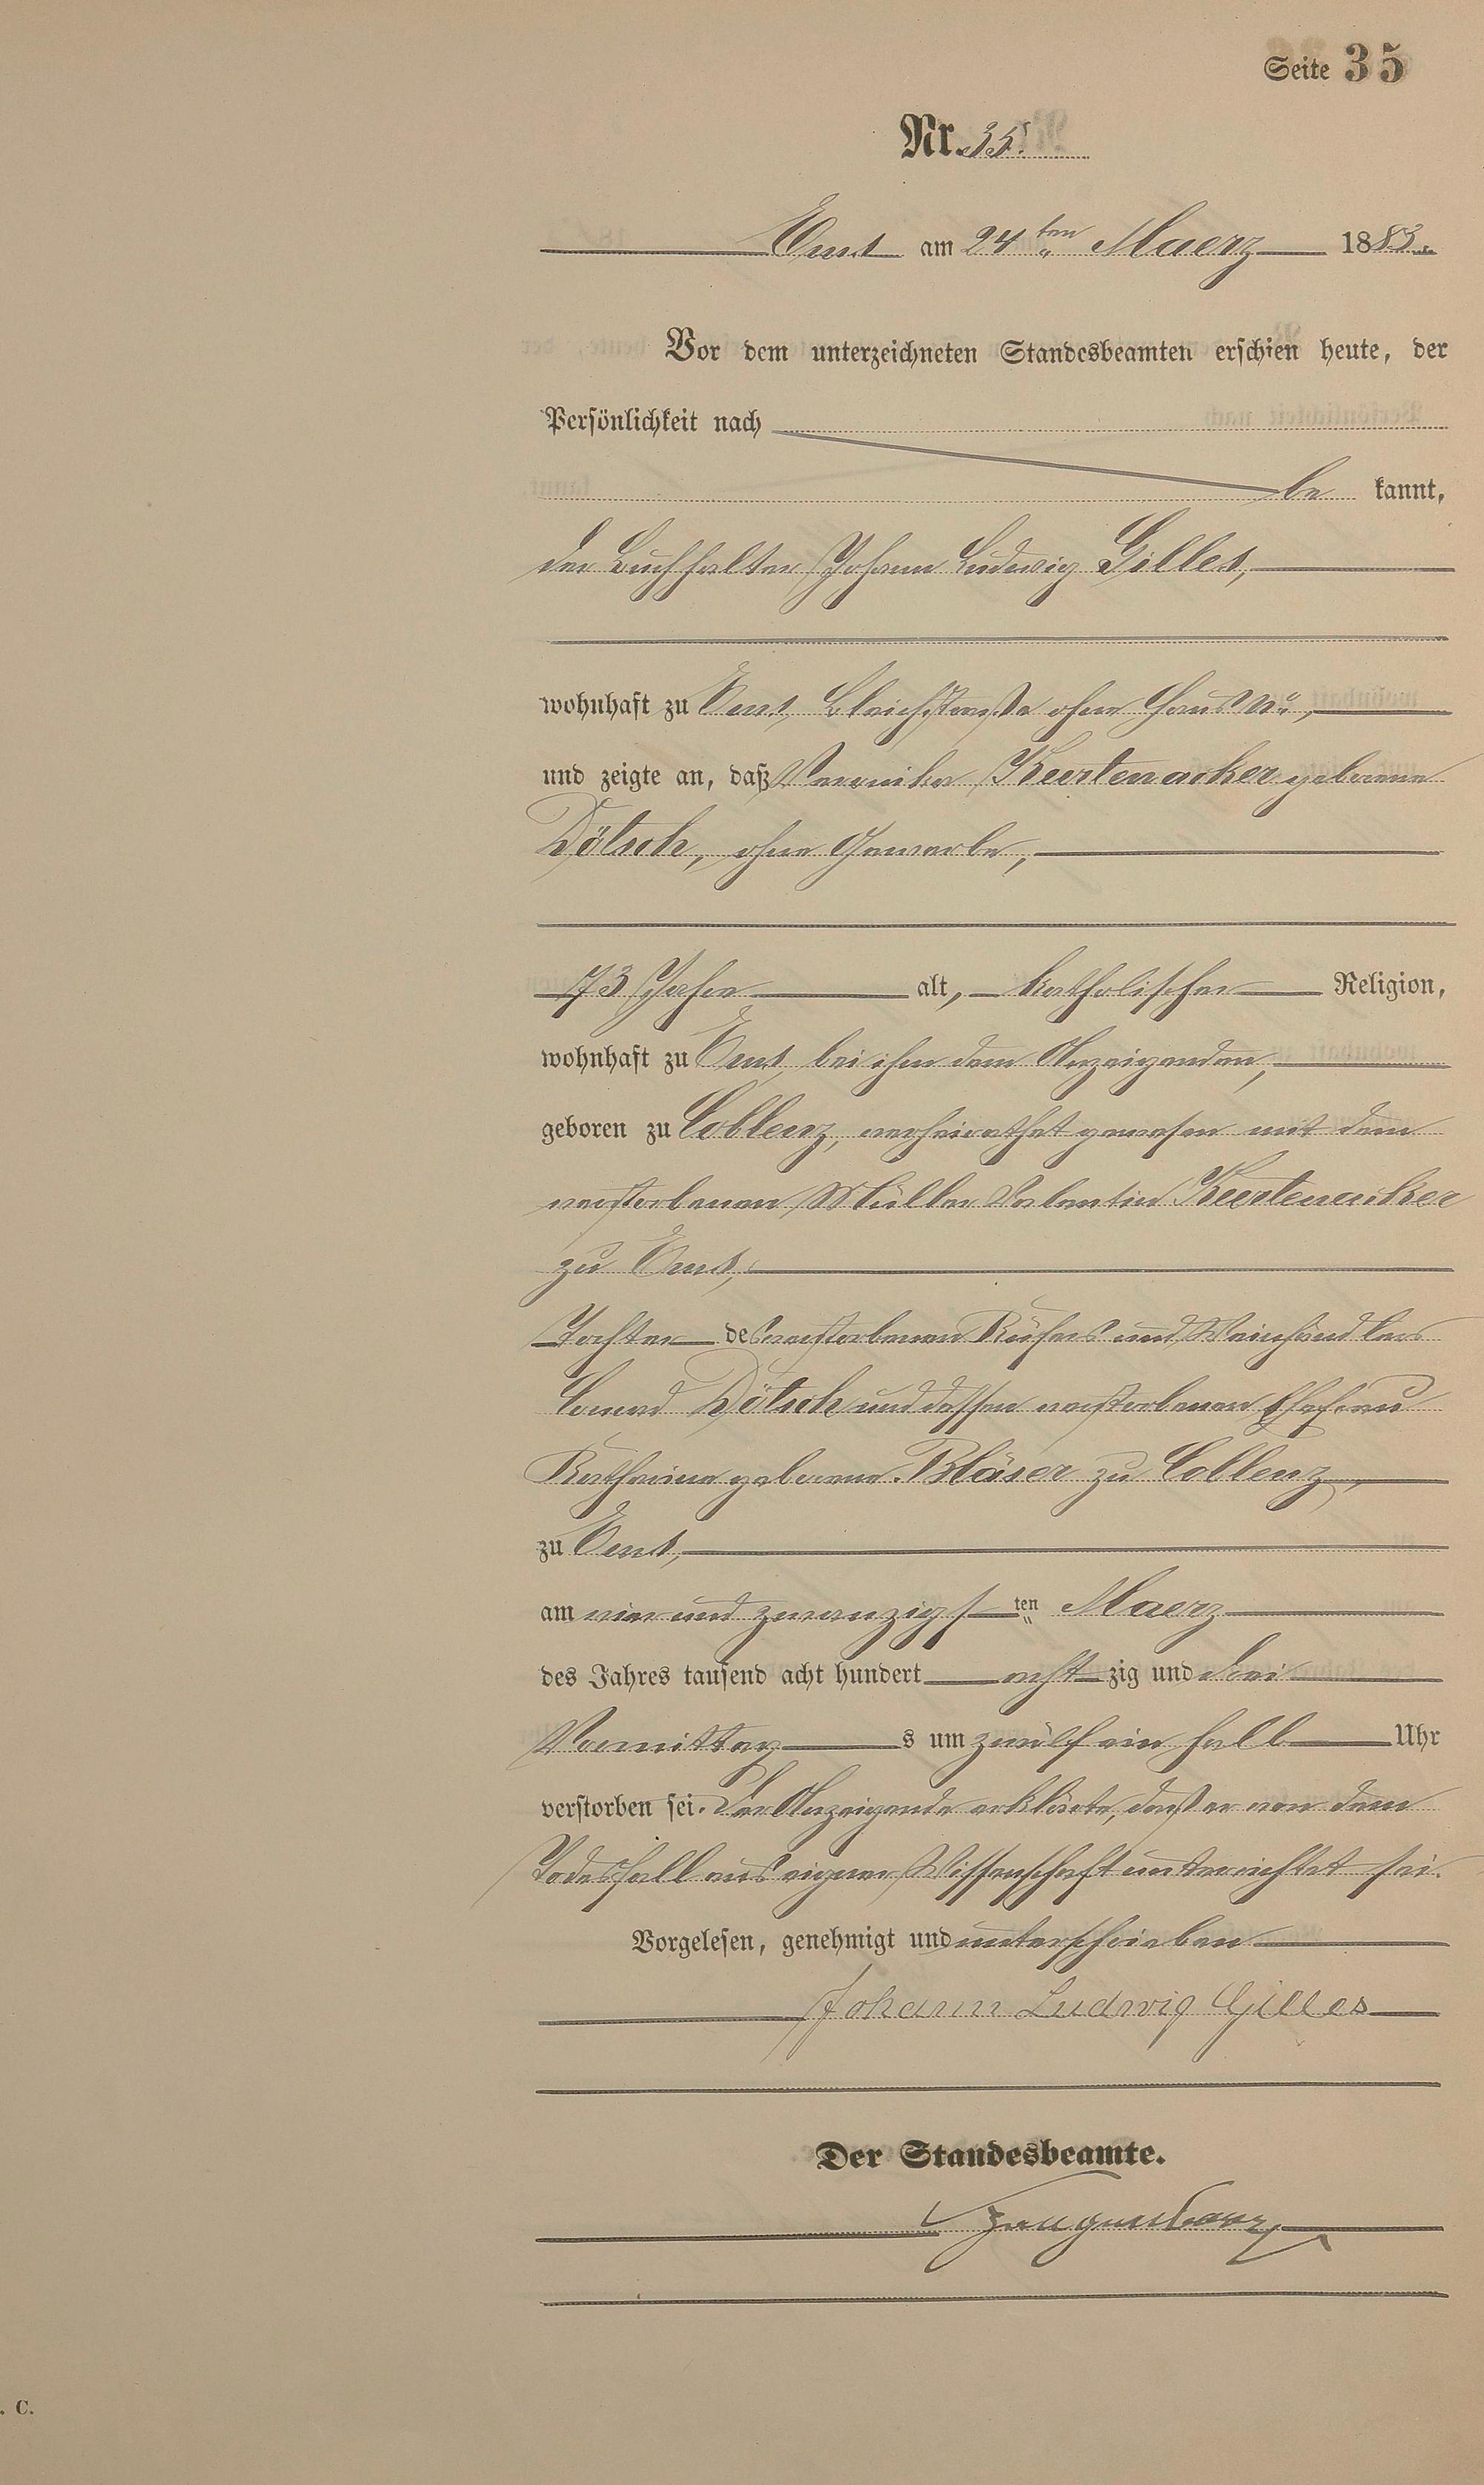 Seite 35
Nr. 35.
Ems am 24ten Maerz 1883.
Vor dem unterzeichneten Standesbeamten erschien heute, der
Persönlichkeit nach
be kannt,
der Buchhalter Johann Ludwig Gilles,
wohnhaft zu Ems, Bleichstraße ohne Haus No,
und zeigte an, daß Veronika Kurtenacker geborene
Dötsch, ohne Gewerbe,
73 Jahre alt, katholischer Religion,
wohnhaft zu Ems, bei ihm dem Anzeigenden,
geboren zu Coblenz, verheirathet gewesen mit dem
verstorbenen Müller Valentin Kurtenacker
zu Ems,
Tochter des verstorbenen Küfers und Weinhändlers
Conrad Dötsch und dessen verstorbenen Ehefrau
Katharina geborene Bläser zu Coblenz,
zu Ems,
am vier und zwanzigsten Maerz
des Jahres tausend acht hundert acht zig und drei
Vormittags um zwölf ein halb Uhr
verstorben sei. Der Anzeigende erklärte, daß er von dem
Todesfall aus eigner Wissenschaft unterrichtet sei.
Vorgelesen, genehmigt und unterschrieben
Johann Ludwig Gilles
Der Standesbeamte.
. C.